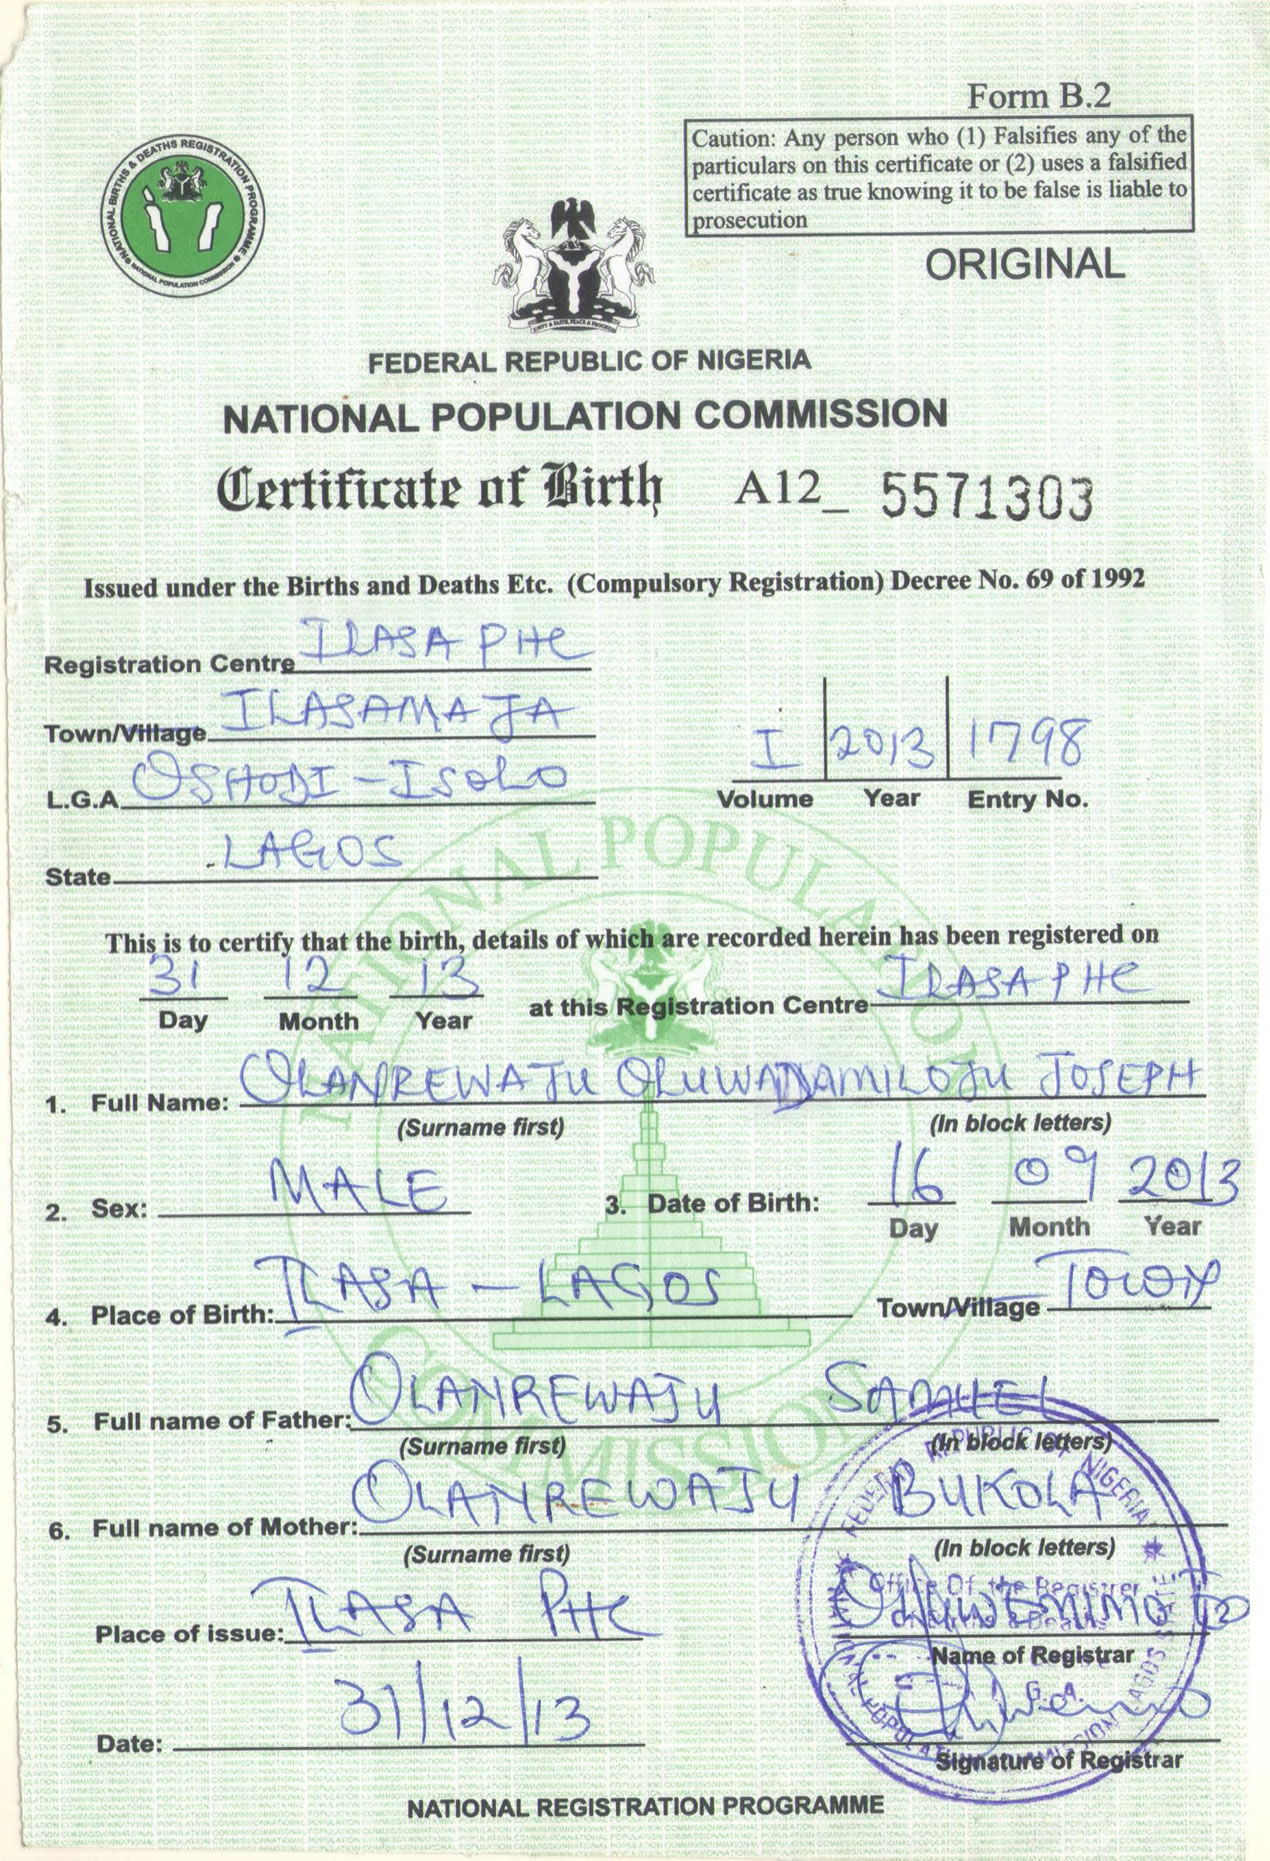 Form B.2
Caution: Any person who (1) Falsifies any of the
particulars on this certificate or (2) uses a falsified
certificate as true knowing it to be false is liable to
prosecution
NATIONAL BIRTHS & DEATHS REGISTRATION PROGRAMME
NATIONAL POPULATION COMMISSION
ORIGINAL
FEDERAL REPUBLIC OF NIGERIA
NATIONAL POPULATION COMMISSION
Certificate of Birth A12_ 5571303
Issued under the Births and Deaths Etc. (Compulsory Registration) Decree No. 69 of 1992
Registration Centre ILASA PHC
Town/Village ILASAMAJA
I 2013 1798
L.G.A OSHODI - ISOLO
Volume Year Entry No.
State LAGOS
NATIONAL POPULATION COMMISSION
This is to certify that the birth, details of which are recorded herein has been registered on
31 12 13 at this Registration Centre ILASA PHC
Day Month Year
1. Full Name: OLANREWAJU OLUWADAMILOJU JOSEPH
(Surname first) (In block letters)
2. Sex: MALE 3. Date of Birth: 16 09 2013
Day Month Year
4. Place of Birth: ILASA - LAGOS Town/Village TOWN
5. Full name of Father: OLANREWAJU SAMUEL
(Surname first) (In block letters)
6. Full name of Mother: OLANREWAJU BUKOLA
(Surname first) (In block letters)
FEDERAL REPUBLIC OF NIGERIA
Office Of the Registrar
Place of issue: ILASA PHC
Name of Registrar
Date: 31/12/13
Signature of Registrar
NATIONAL REGISTRATION PROGRAMME